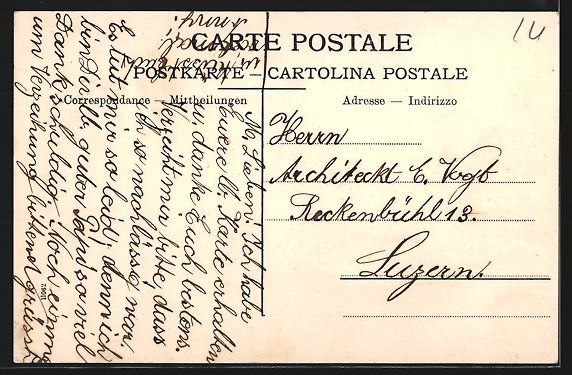 14
CARTE POSTALE
POSTKARTE — CARTOLINA POSTALE
Correspondance — Mittheilungen
Adresse — Indirizzo
Herrn
Architeckt E. Vogt
Reckenbühl 13.
Luzern.
Na Lieben! Ich habe
Euere lb. Karte erhalten
u. danke Euch bestens.
Verzeiht mir bitte, dass
ich so nachlässig war.
Es tut mir so leid, denn ich
bin Dir lb. guter Papi so viel
Dank schuldig. Noch einmal
um Verzeihung bittend grüsst